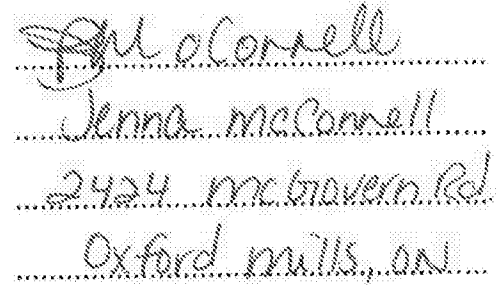 McConnell
Jenna McConnell
2424 McGovern Rd
Oxford mills, ON